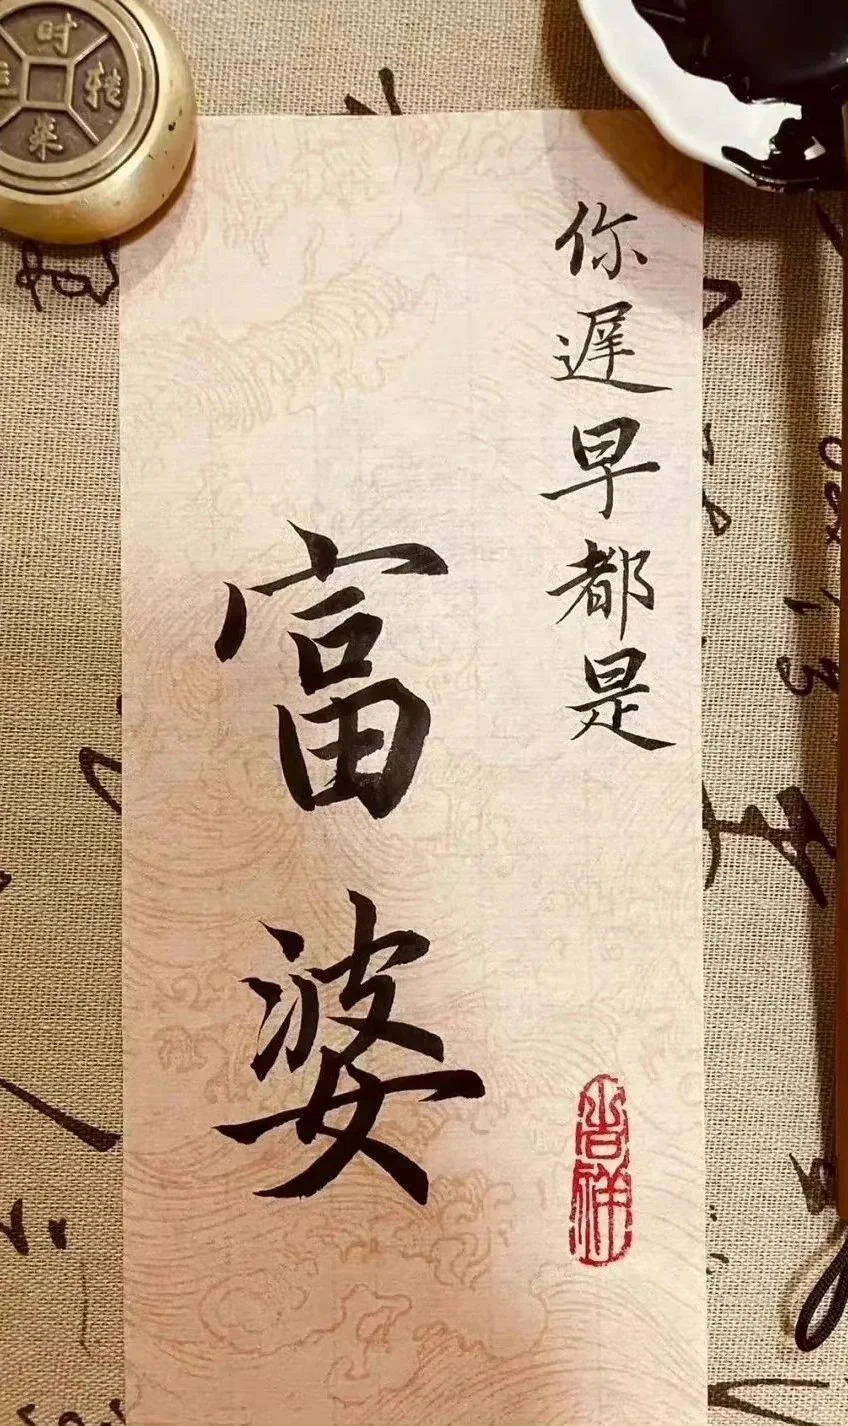 你遲早都是
富婆
吉祥
时转来